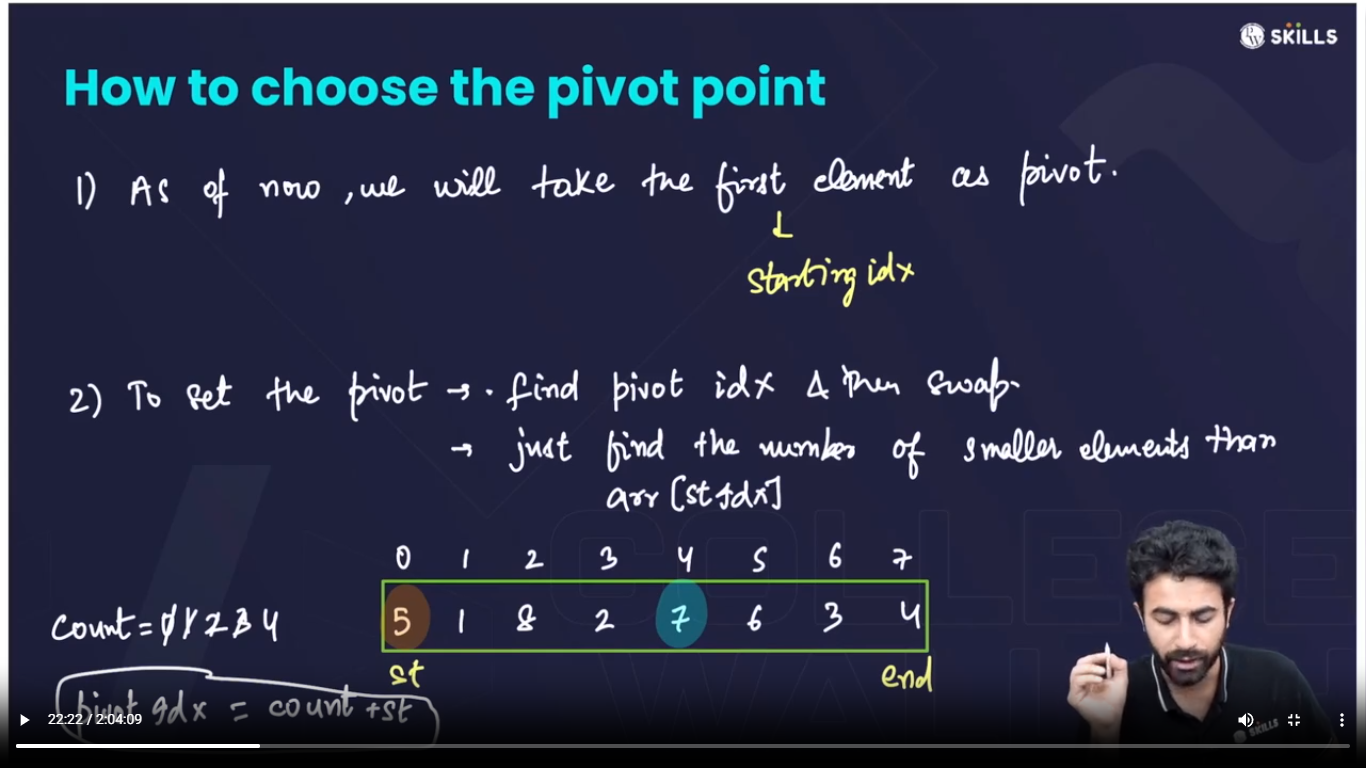 PW SKILLS
How to choose the pivot point
1) As of now, we will take the first element as pivot.
↓
starting idx
2) To set the pivot → . find pivot idx & then swap.
→ just find the number of smaller elements than
arr [st Idx]
0 1 2 3 4 5 6 7
count = 0 1 2 3 4 5 1 8 2 7 6 3 4
st end
pivot Idx = count + st
22:22 / 2:04:09
SKILLS